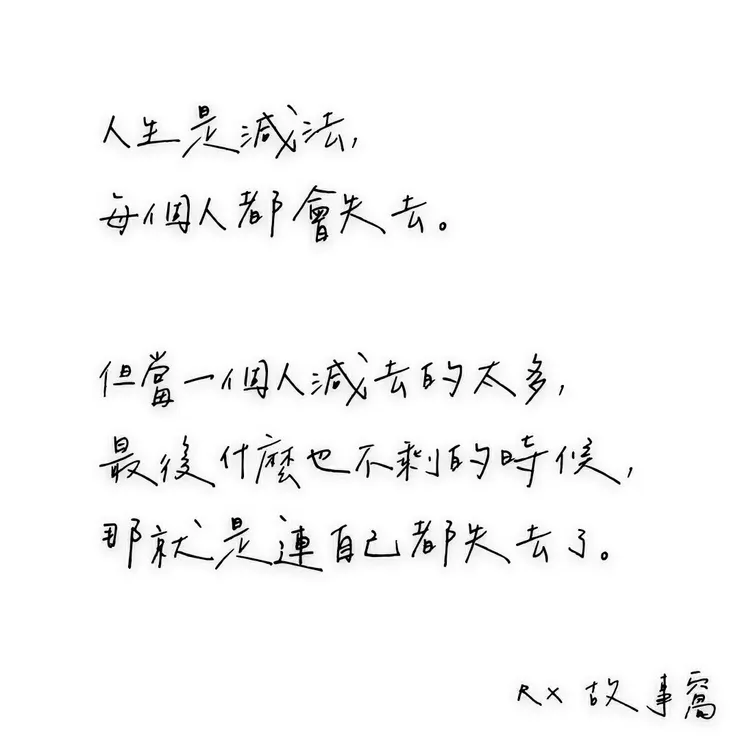 人生是減法,
每個人都會失去。
但當一個人減去的太多,
最後什麼也不剩的時候,
那就是連自己都失去了。
RX 故事窩